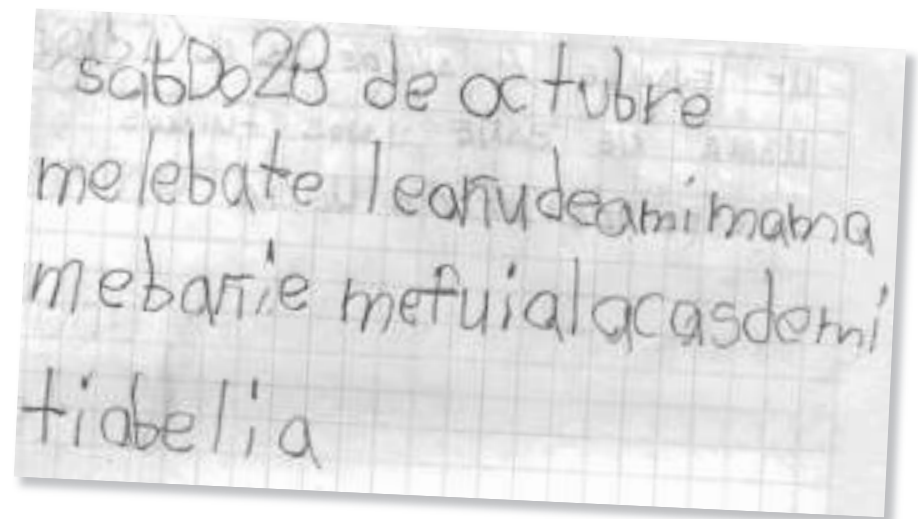 sabDo28 de octubre
melebate leañudeamimama
mebañie mefuialacasdemi
tiabelia